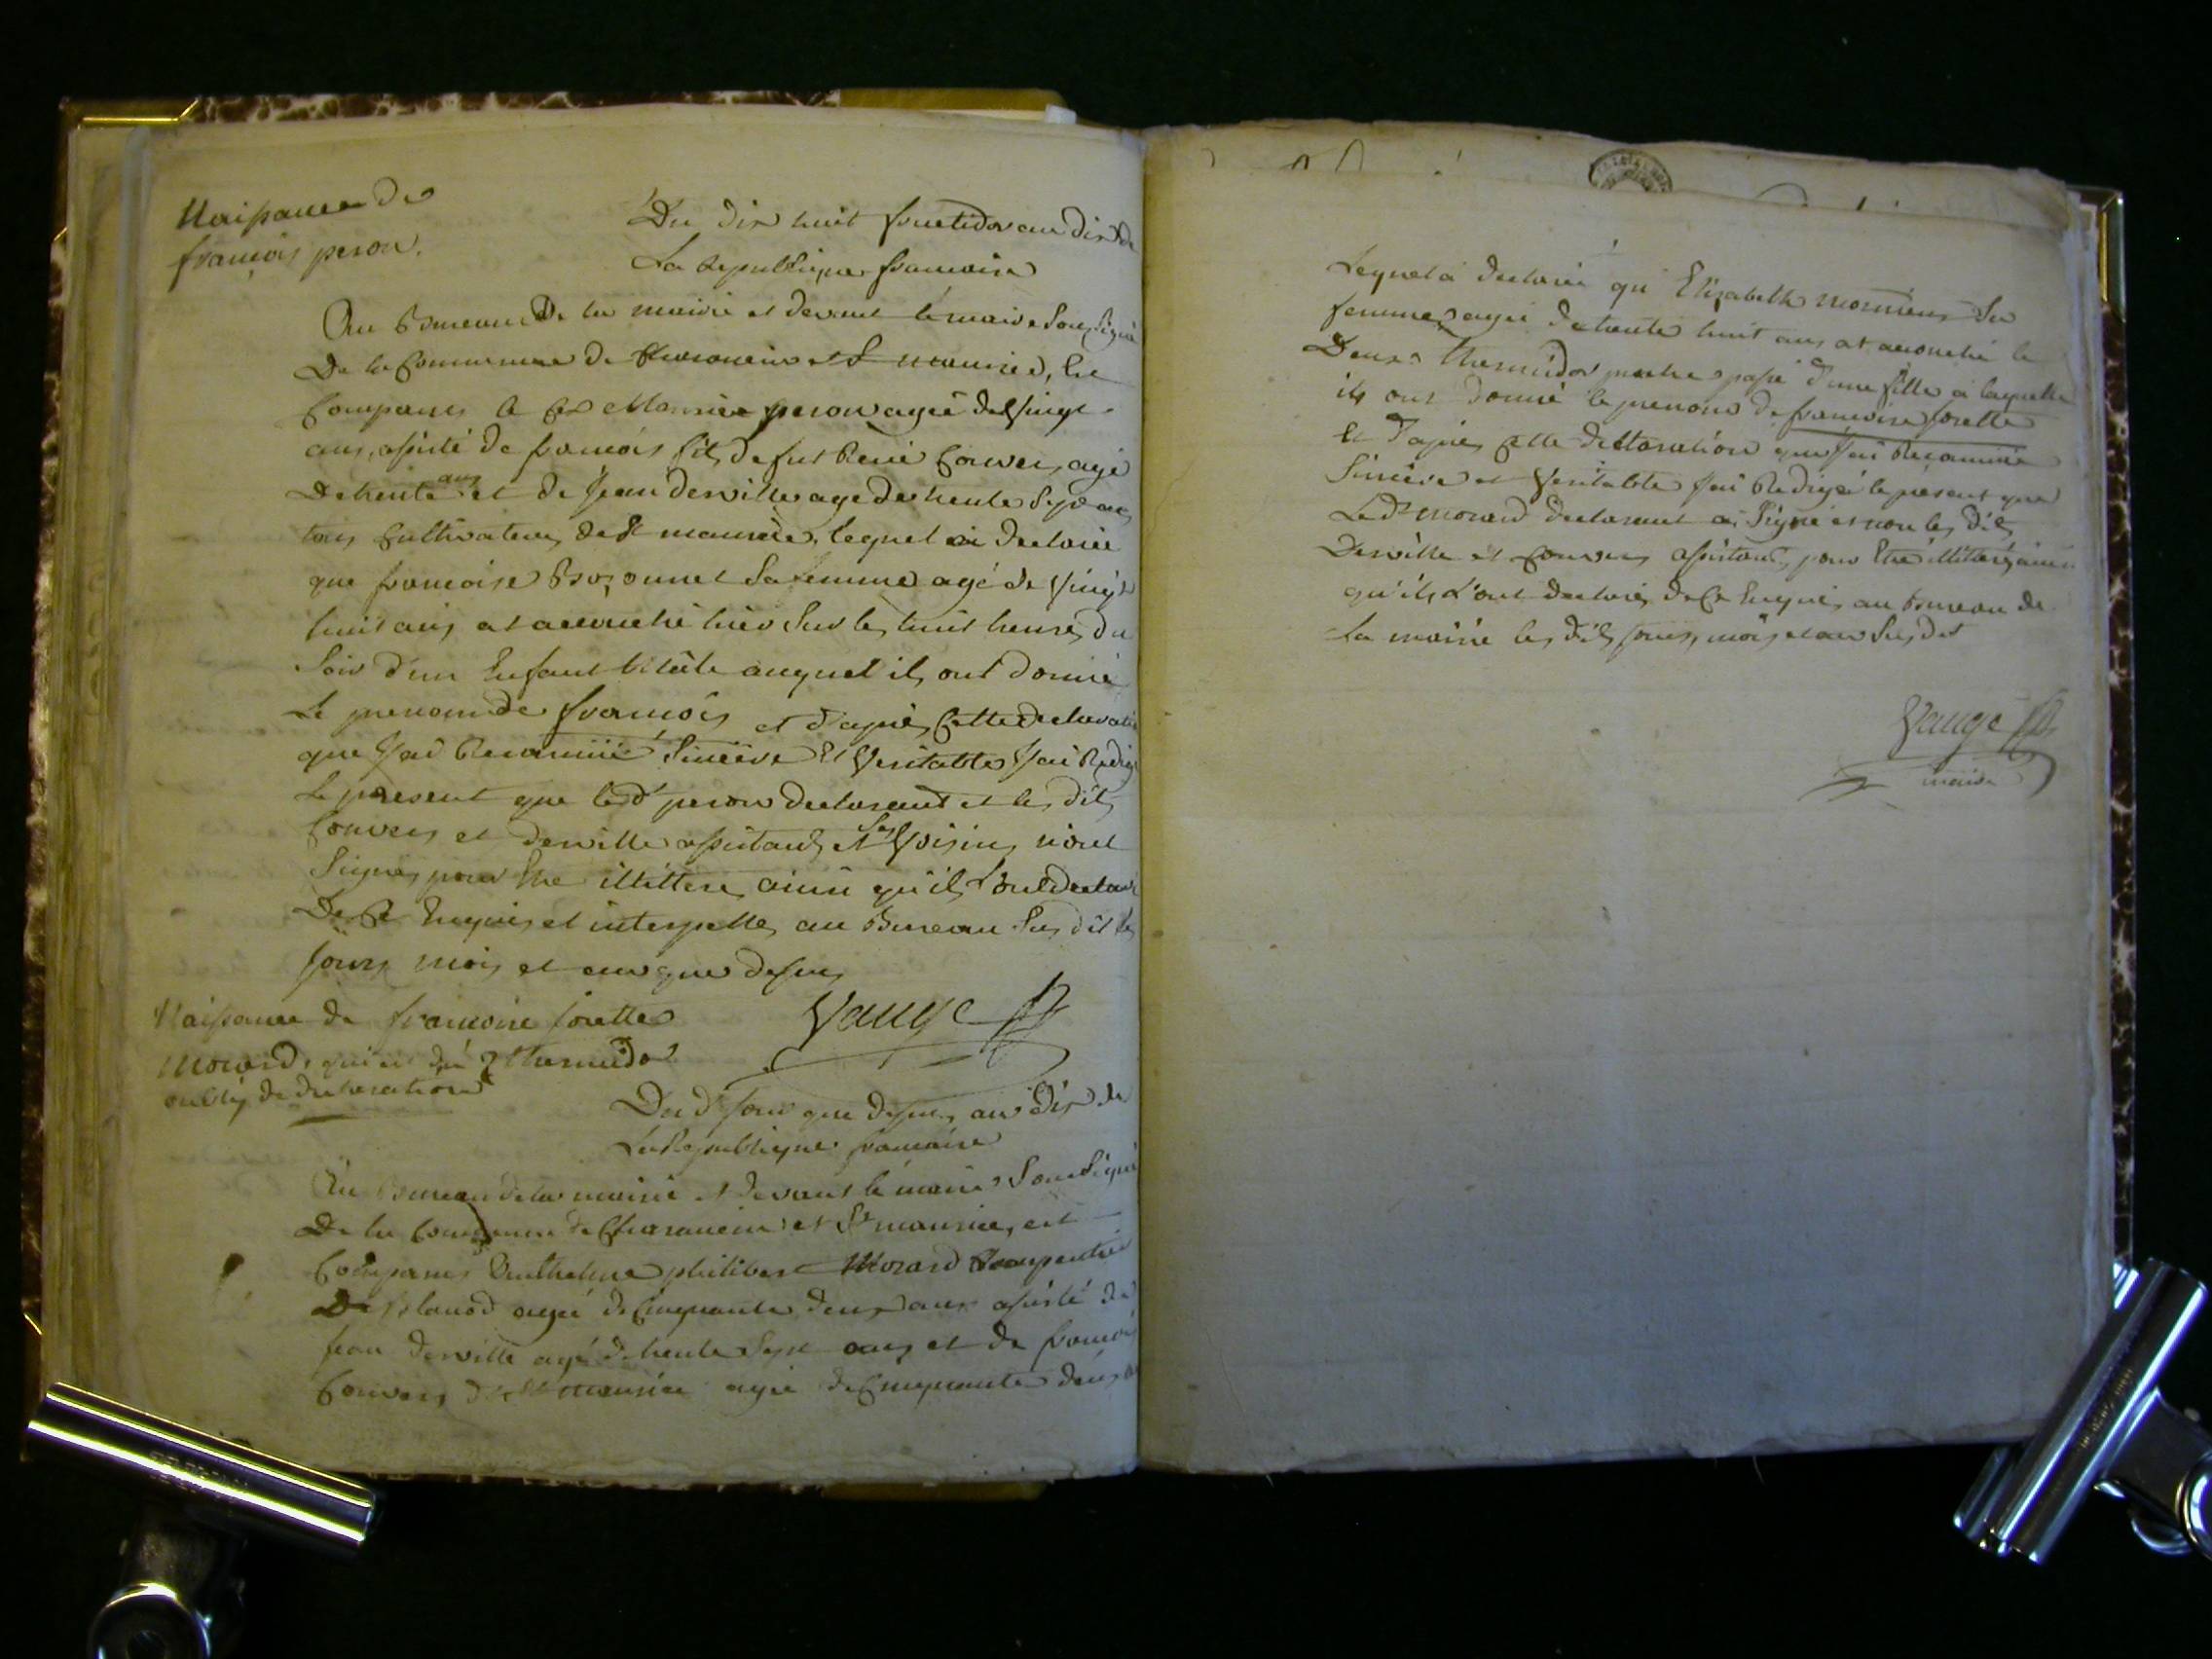 Naissance de
françois peron.
Du dix huit fructidor an dix de
La republique francoise
Au Bureau De la mairie et devant le maire Sousigné
De la Commune de Charancin et St maurice, Est
Comparus le Cen Maurice peron agée de Vingt
ans, assisté de francois fils de fut René Convers, agé
De trente ans et de Jean derville age de trente Sept ans
tous Cultivateurs de St maurice, lequel a declaré
que francoise Bozonnet Sa femme agé de Vingt
huit ans at accouché hier Sur les huit heures du
Soir d'un Enfant Mâle auquel ils ont Donné
Le prenom de francois et d'après Cette declaratio
que J'ai Recannüe Sincère Et Veritable J'ai Redigé
Le present que led peron declarant et les dits
Convers et derville assistants et Ses Voisins n'ont
Signés pour Etre illittere ainsi qu'ils L'ont declaré
De Ce Enquis et interpellé au Bureau Sus dit les
Jours mois et an que dessus
Vauge
Naissance de francoise Josette
Morard, qui est du 2 thermidor
oublis de declaration
Du d Jour que dessus an dix de
La Republique francoise
Au Bureau de la mairie et devant le maire Sousigné
De la Commune de Charancin et St maurice, est
Comparus Berthelme philibert Morard Charpentier
De agée de Cinquante deux ans assisté de
Jean derville agé de trente Sept ans et de francois
Convers de St Maurice agée de Cinquante deux
Lequel à declarée qu'Elizabeth Sa
femme, agée de trente huit ans at accouché le
Deux thermidor proche passé d'une fille à laquelle
ils ont donné le prenom de francoise Josette
Et d'après Cette declaration que J'ai Recannüe
Sincère et Veritable J'ai Redigé le present que
Led morard declarant a Signé et non les dits
Derville et Convers assistants, pour Etre illitères ainsi
qu'ils L'ont declarés de Ce Enquis, au Bureau de
La mairie les dits jours, mois et an Sus dit
Vauge
maire